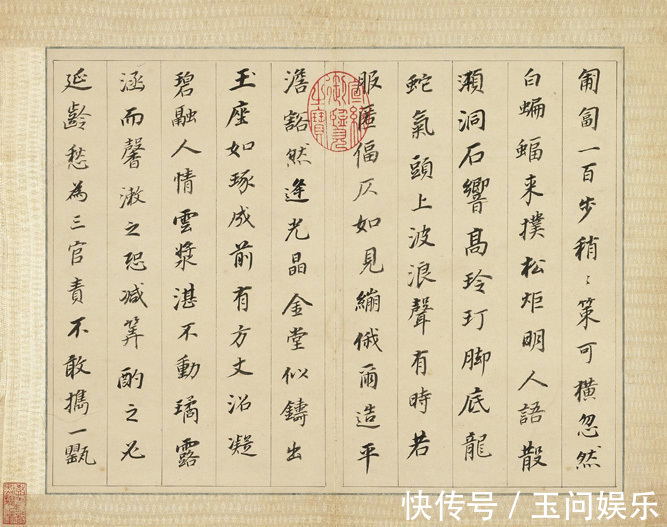 匍匐一百步稍〻策可橫忽然
白蝙蝠来撲松炬明人語散
澒洞石響高玲玎脚底龍
蛇氣頭上波浪聲有時若
服匿偪仄如見繃俄爾造平
澹豁然逢光晶金堂似鑄出
玉座如琢成前有方丈沼凝
碧融人情雲漿湛不動璚露
涵而馨漱之恐減筭酌之必
延齡愁為三官責不敢擕一甖
快传号 / 玉问娱乐